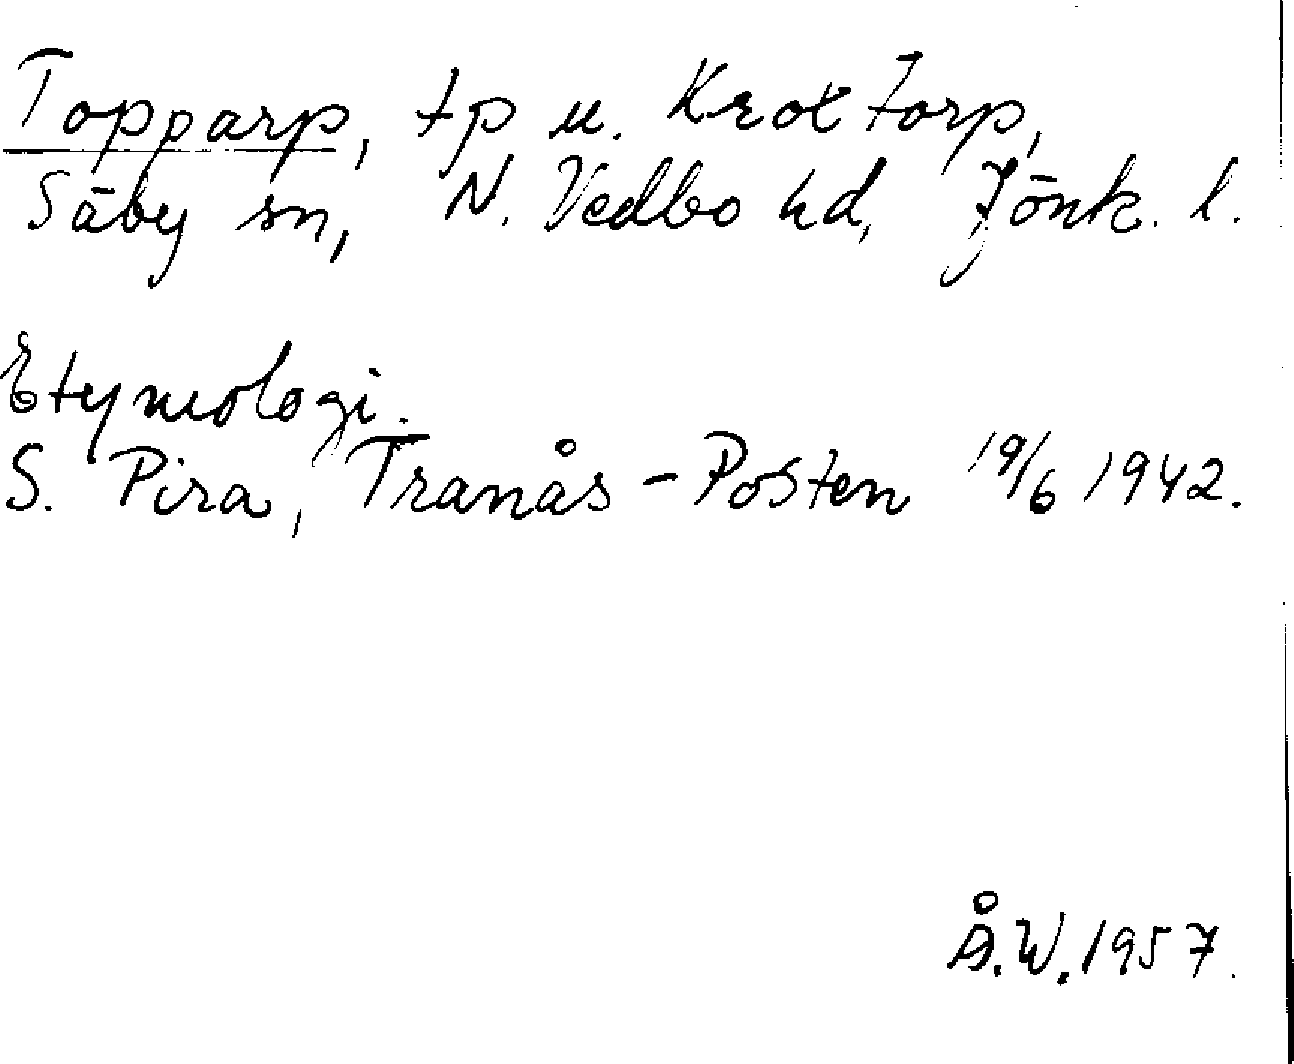 Topparp, tp u. Kroxtorp,
Säby sn, N. Vedbo hd, Jönk. l.
Etymologi.
S. Pira, Tranås-Posten 19/6 1942.
Å.W. 1957.